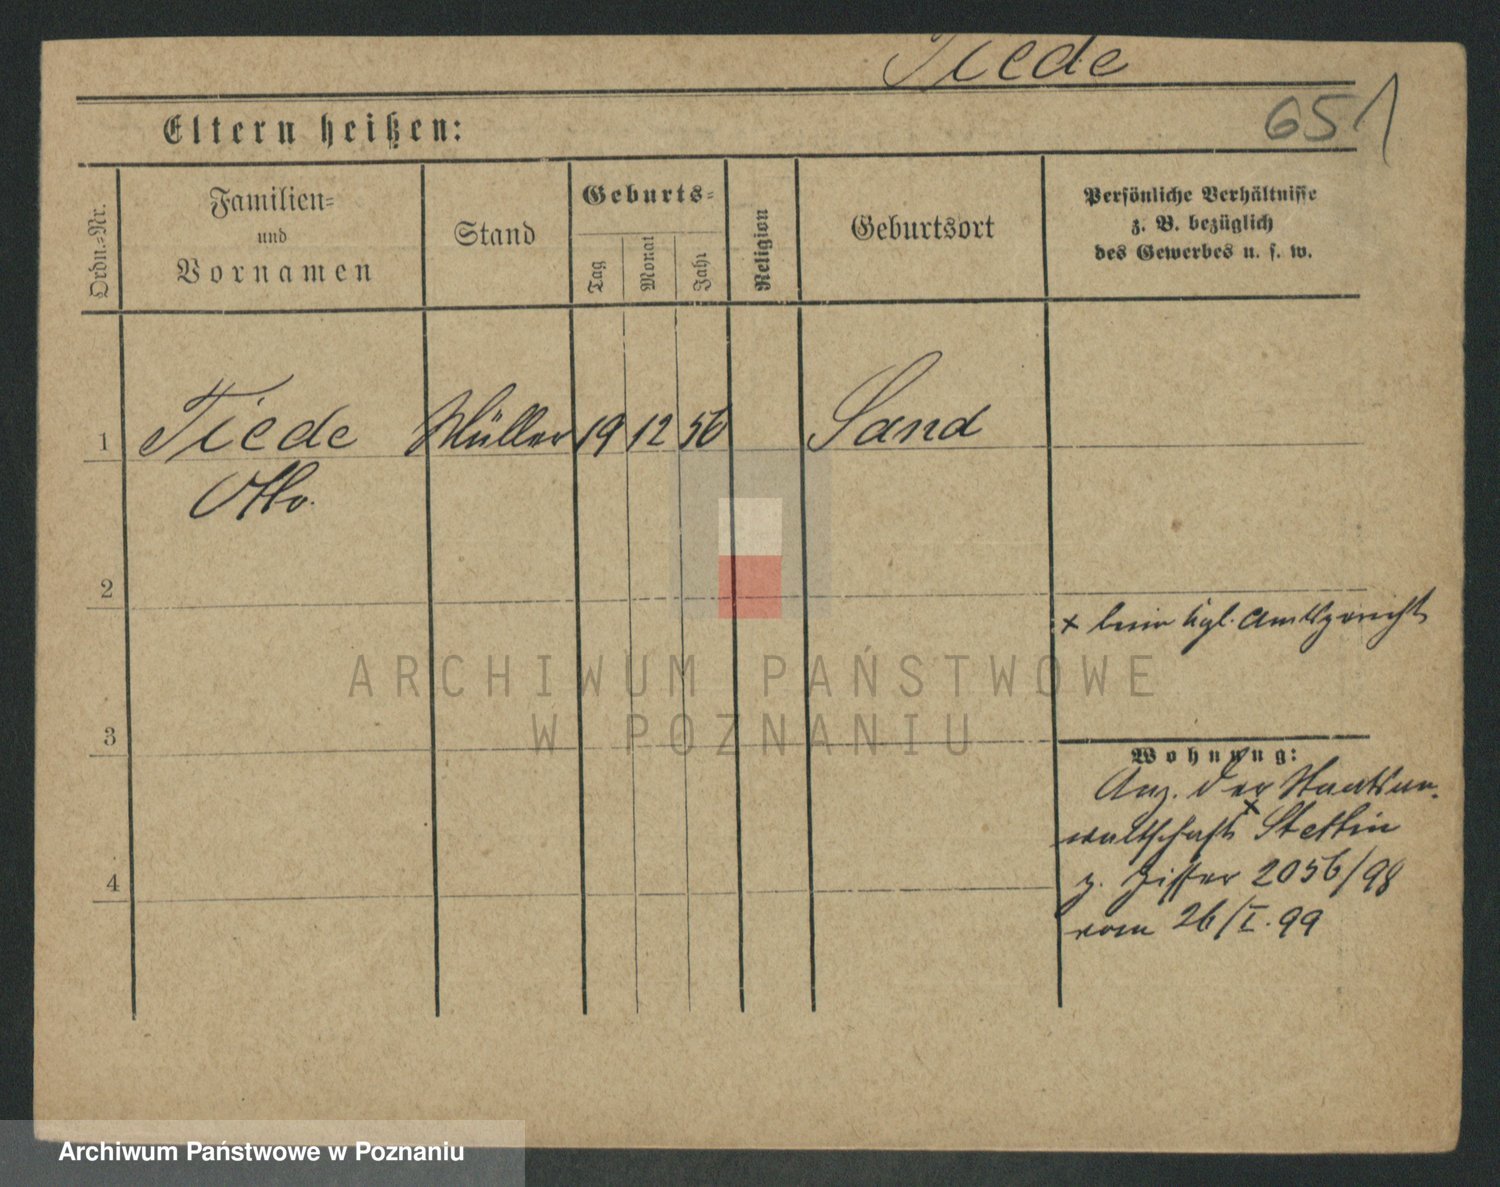 Tiede
651
Eltern heißen:
Ordn.-Nr.
Familien-
und
Vornamen
Stand
Geburts-
Tag
Monat
Jahr
Religion
Geburtsort
Persönliche Verhältnisse
z. B. bezüglich
des Gewerbes u. s. w.
1 Tiede Müller 19 12 56 Sand
Otto.
2
x beim kgl. Amtsgericht
ARCHIWUM PAŃSTWOWE
W POZNANIU
3
Wohnung:
Anz. der Staatsan-
x
waltschaft Stettin
z. Ziffer 2056/98
4
vom 26/I. 99
Archiwum Państwowe w Poznaniu